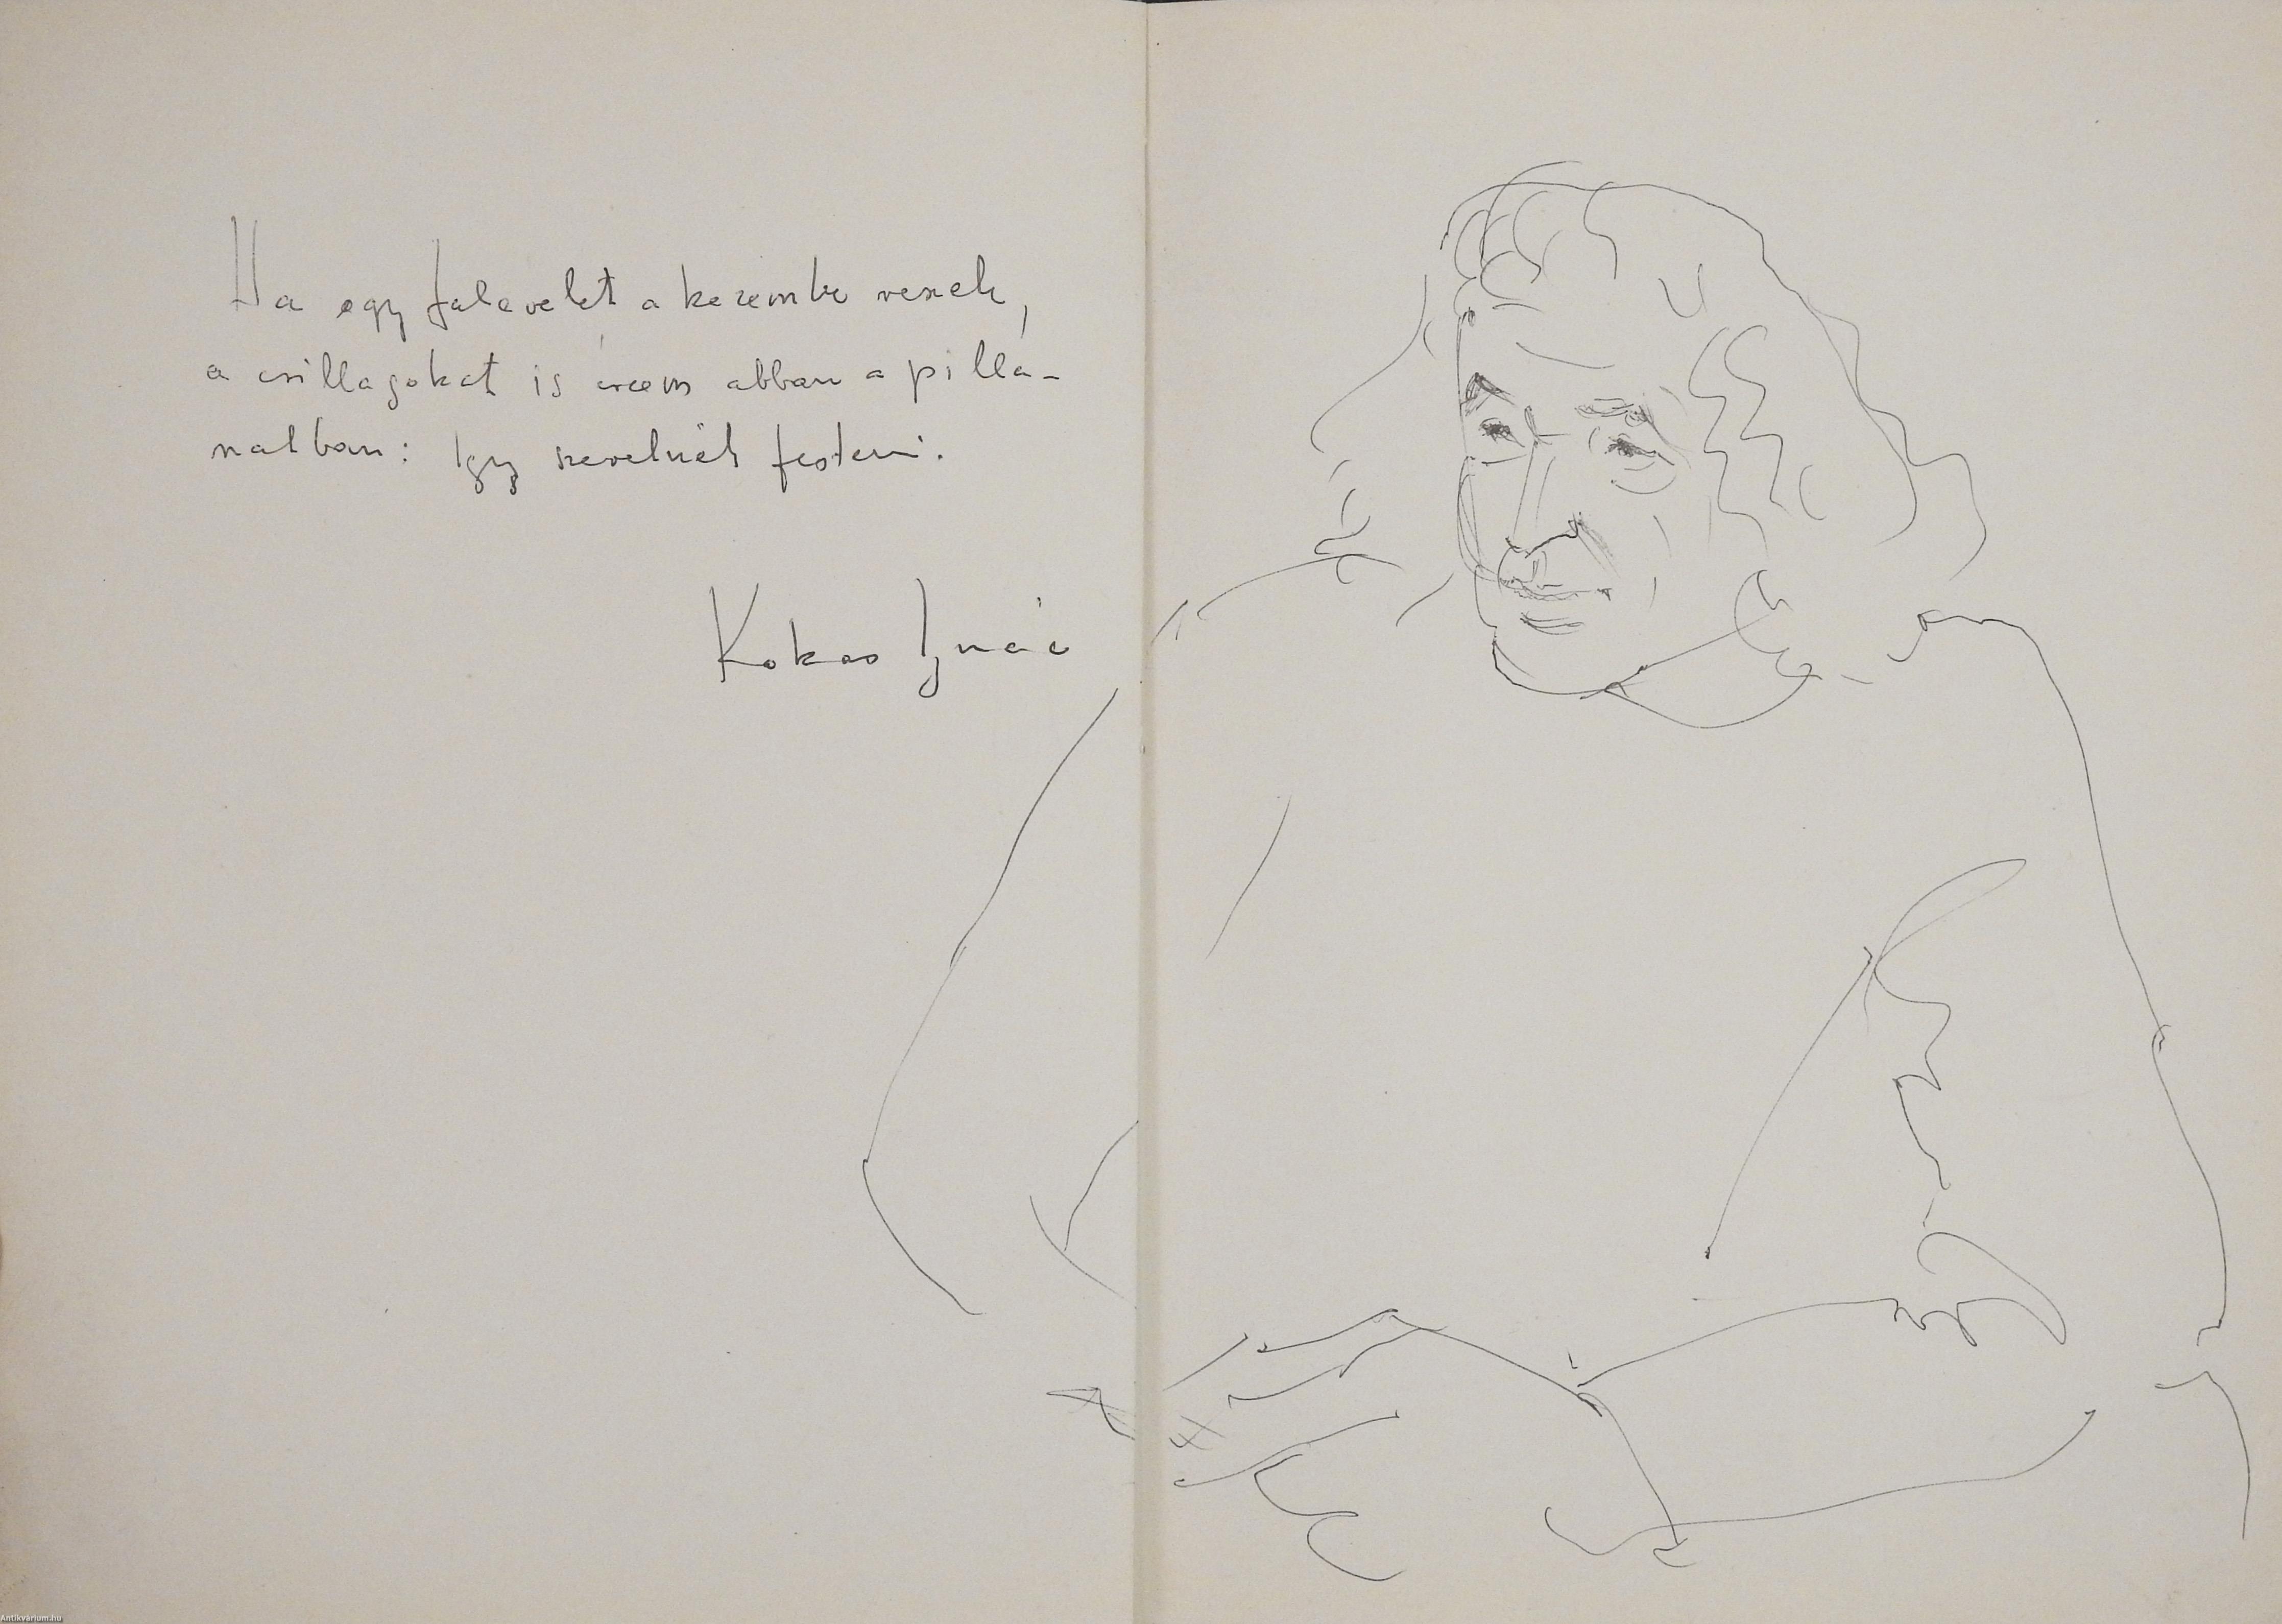 Ha egy falevelet a kezembe veszek,
a csillagokat is érzem abban a pilla-
natban: így szeretnék festeni.
Kokas Ignác
Antikvárium.hu